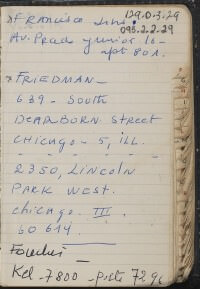 Francisco
129.0-3.29
095.2.2-29
Av. Prado Junior 16-
apt 801.
FRIEDMAN -
639 - South
DEARBORN Street
CHICAGO - 5, ILL.
2350, LINCOLN
PARK WEST.
chicago. III.
60614.
Kel - 7800 -